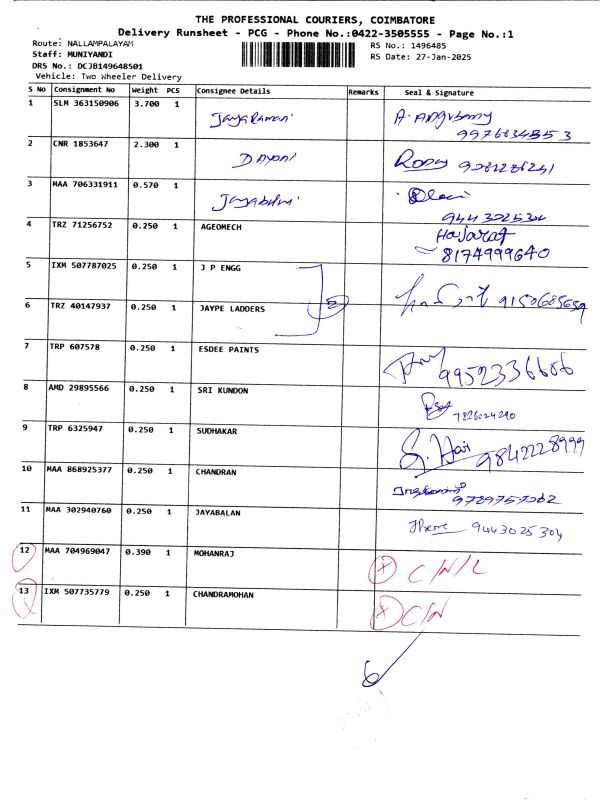 THE PROFESSIONAL COURIERS, COIMBATORE
Delivery Runsheet - PCG - Phone No.:0422-3505555 - Page No.:1
Route: NALLAMPALAYAM
RS No.: 1496485
Staff: MUNIYANDI
RS Date: 27-Jan-2025
DRS No.: DCJB149648501
Vehicle: Two Wheeler Delivery
S No Consignment No Weight PCS Consignee Details Remarks Seal & Signature
1 SLM 363150906 3.700 1 Jayaramani
2 CNR 1853647 2.300 1
3 MAA 706331911 0.570 1
944 3025304
4 TRZ 71256752 0.250 1 AGEOMECH Hajarat
8174999640
5 IXM 507787025 0.250 1 J P ENGG
9150685659
6 TRZ 40147937 0.250 1 JAYPE LADDERS
7 TRP 607578 0.250 1 ESDEE PAINTS
9952336606
8 AMD 29895566 0.250 1 SRI KUNDON
7826024290
9 TRP 6325947 0.250 1 SUDHAKAR S. Hari 9842228999
10 MAA 868925377 0.250 1 CHANDRAN
9789757062
11 MAA 302940760 0.250 1 JAYABALAN 9443025304
12 MAA 704969047 0.390 1 MOHANRAJ X C/N/L
13 IXM 507735779 0.250 1 CHANDRAMOHAN X C/N